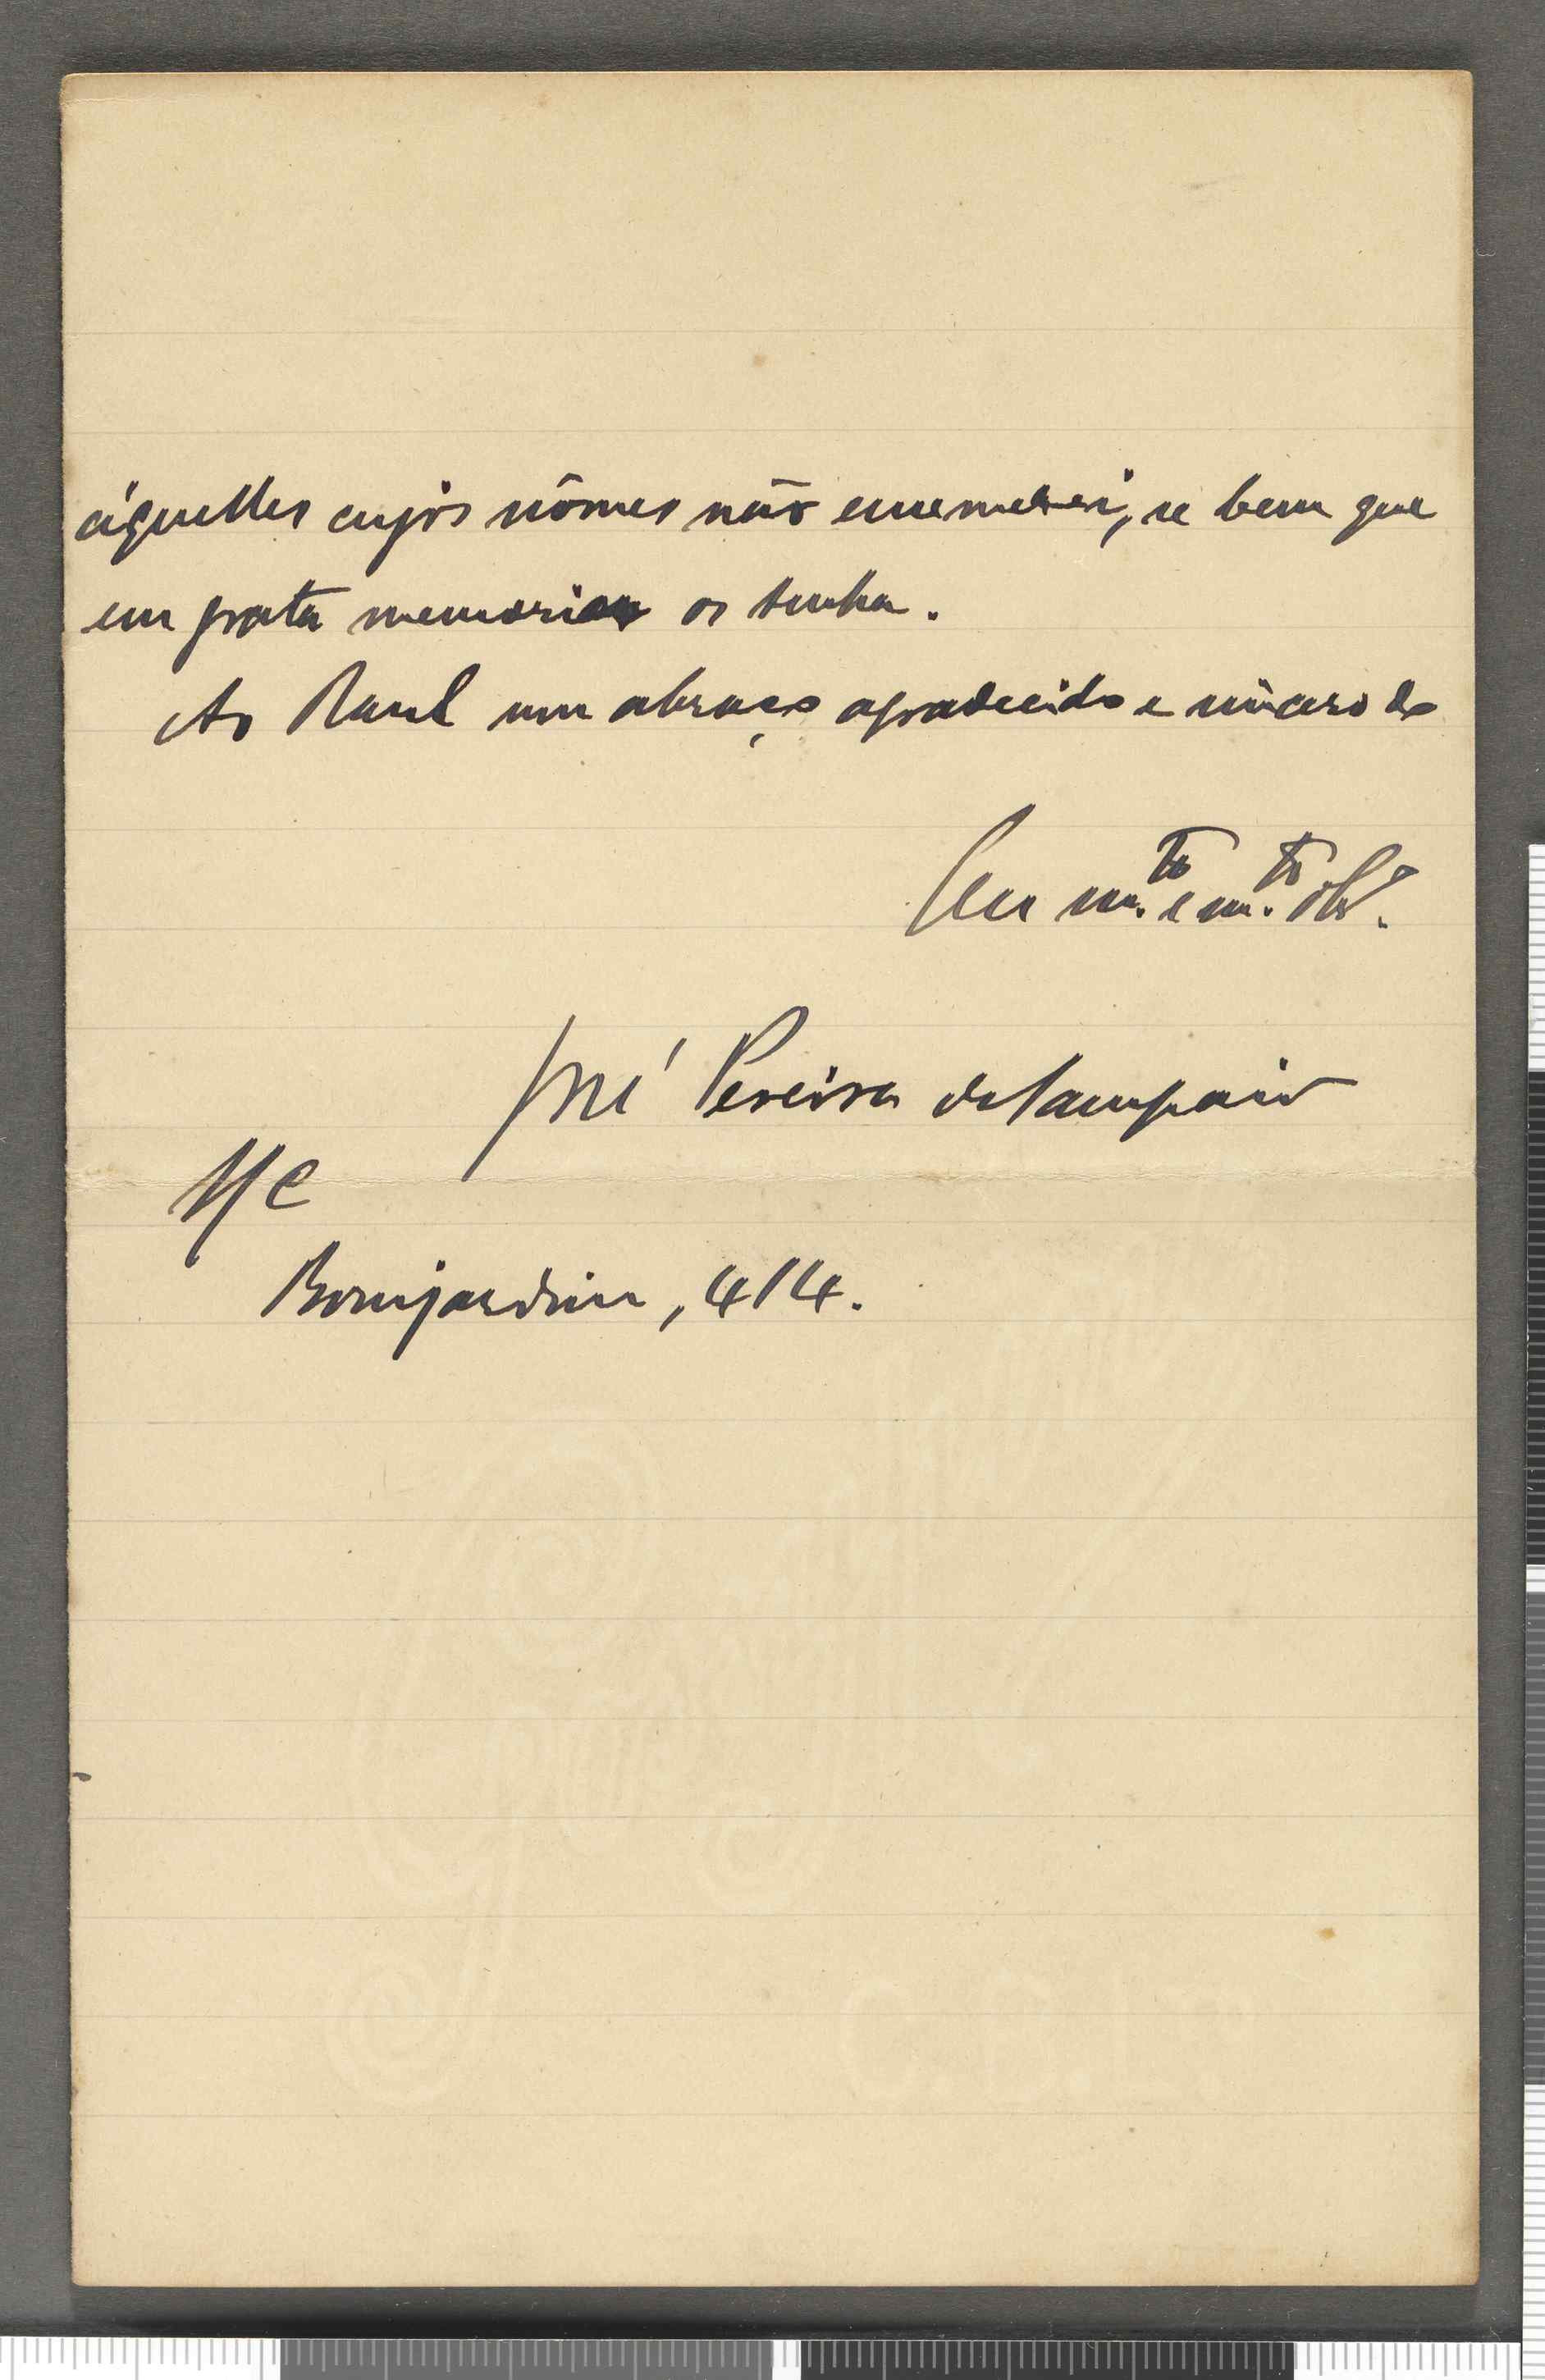 áquelles cujos nômes não enumerei, se bem que
em grata memoria os tenha.
Ao Raul um abraço agradecido e sincero do
Seu m.to e m.to obr.º
José Pereira de Sampaio
S/C
Bomjardim, 414.